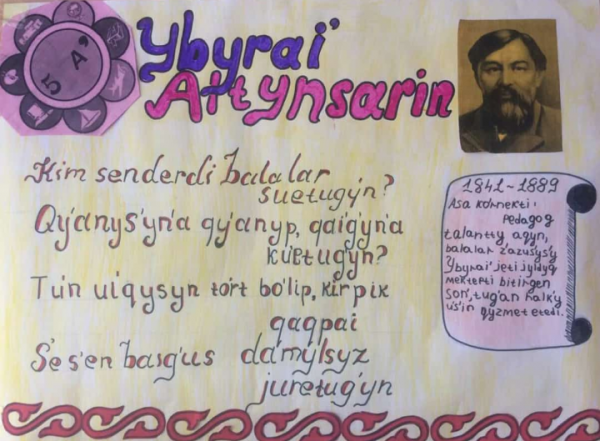 5 A'
Ybyrai'
Altynsarin
Kim senderdi balalar
suetugy'n?
Qy'anys'yn'a qy'anyp, qai'g'yn'a
ku'ietugy'n?
Tu'n ui'qysyn to'rt bo'lip, kirpik
qaqpai
S'es'en basg'us da'mylsyz
juretug'yn
1841-1889
Asa ko'rnekti
pedagog
talantty aqyn,
balalar z'azus'ys'y
Ybyrai' jeti jyldyq
mektepti bitirgen
son', tug'an halk'y
u's'in qyzmet etedi.